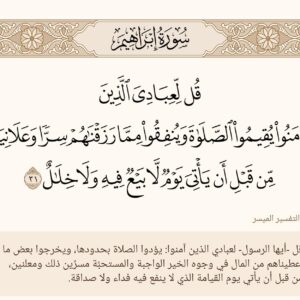 سُورَةُ إِبْرَاهِيمَ
قُل لِّعِبَادِيَ ٱلَّذِينَ
ءَامَنُوا۟ يُقِيمُوا۟ ٱلصَّلَوٰةَ وَيُنفِقُوا۟ مِمَّا رَزَقْنَٰهُمْ سِرًّا وَعَلَانِيَةً
مِّن قَبْلِ أَن يَأْتِىَ يَوْمٌ لَّا بَيْعٌ فِيهِ وَلَا خِلَٰلٌ ٣١
التفسير الميسر
قل -أيها الرسول- لعبادي الذين آمنوا: يؤدوا الصلاة بحدودها، ويخرجوا بعض ما
أعطيناهم من المال في وجوه الخير الواجبة والمستحبّة مسرّين ذلك ومعلنين،
من قبل أن يأتي يوم القيامة الذي لا ينفع فيه فداء ولا صداقة.